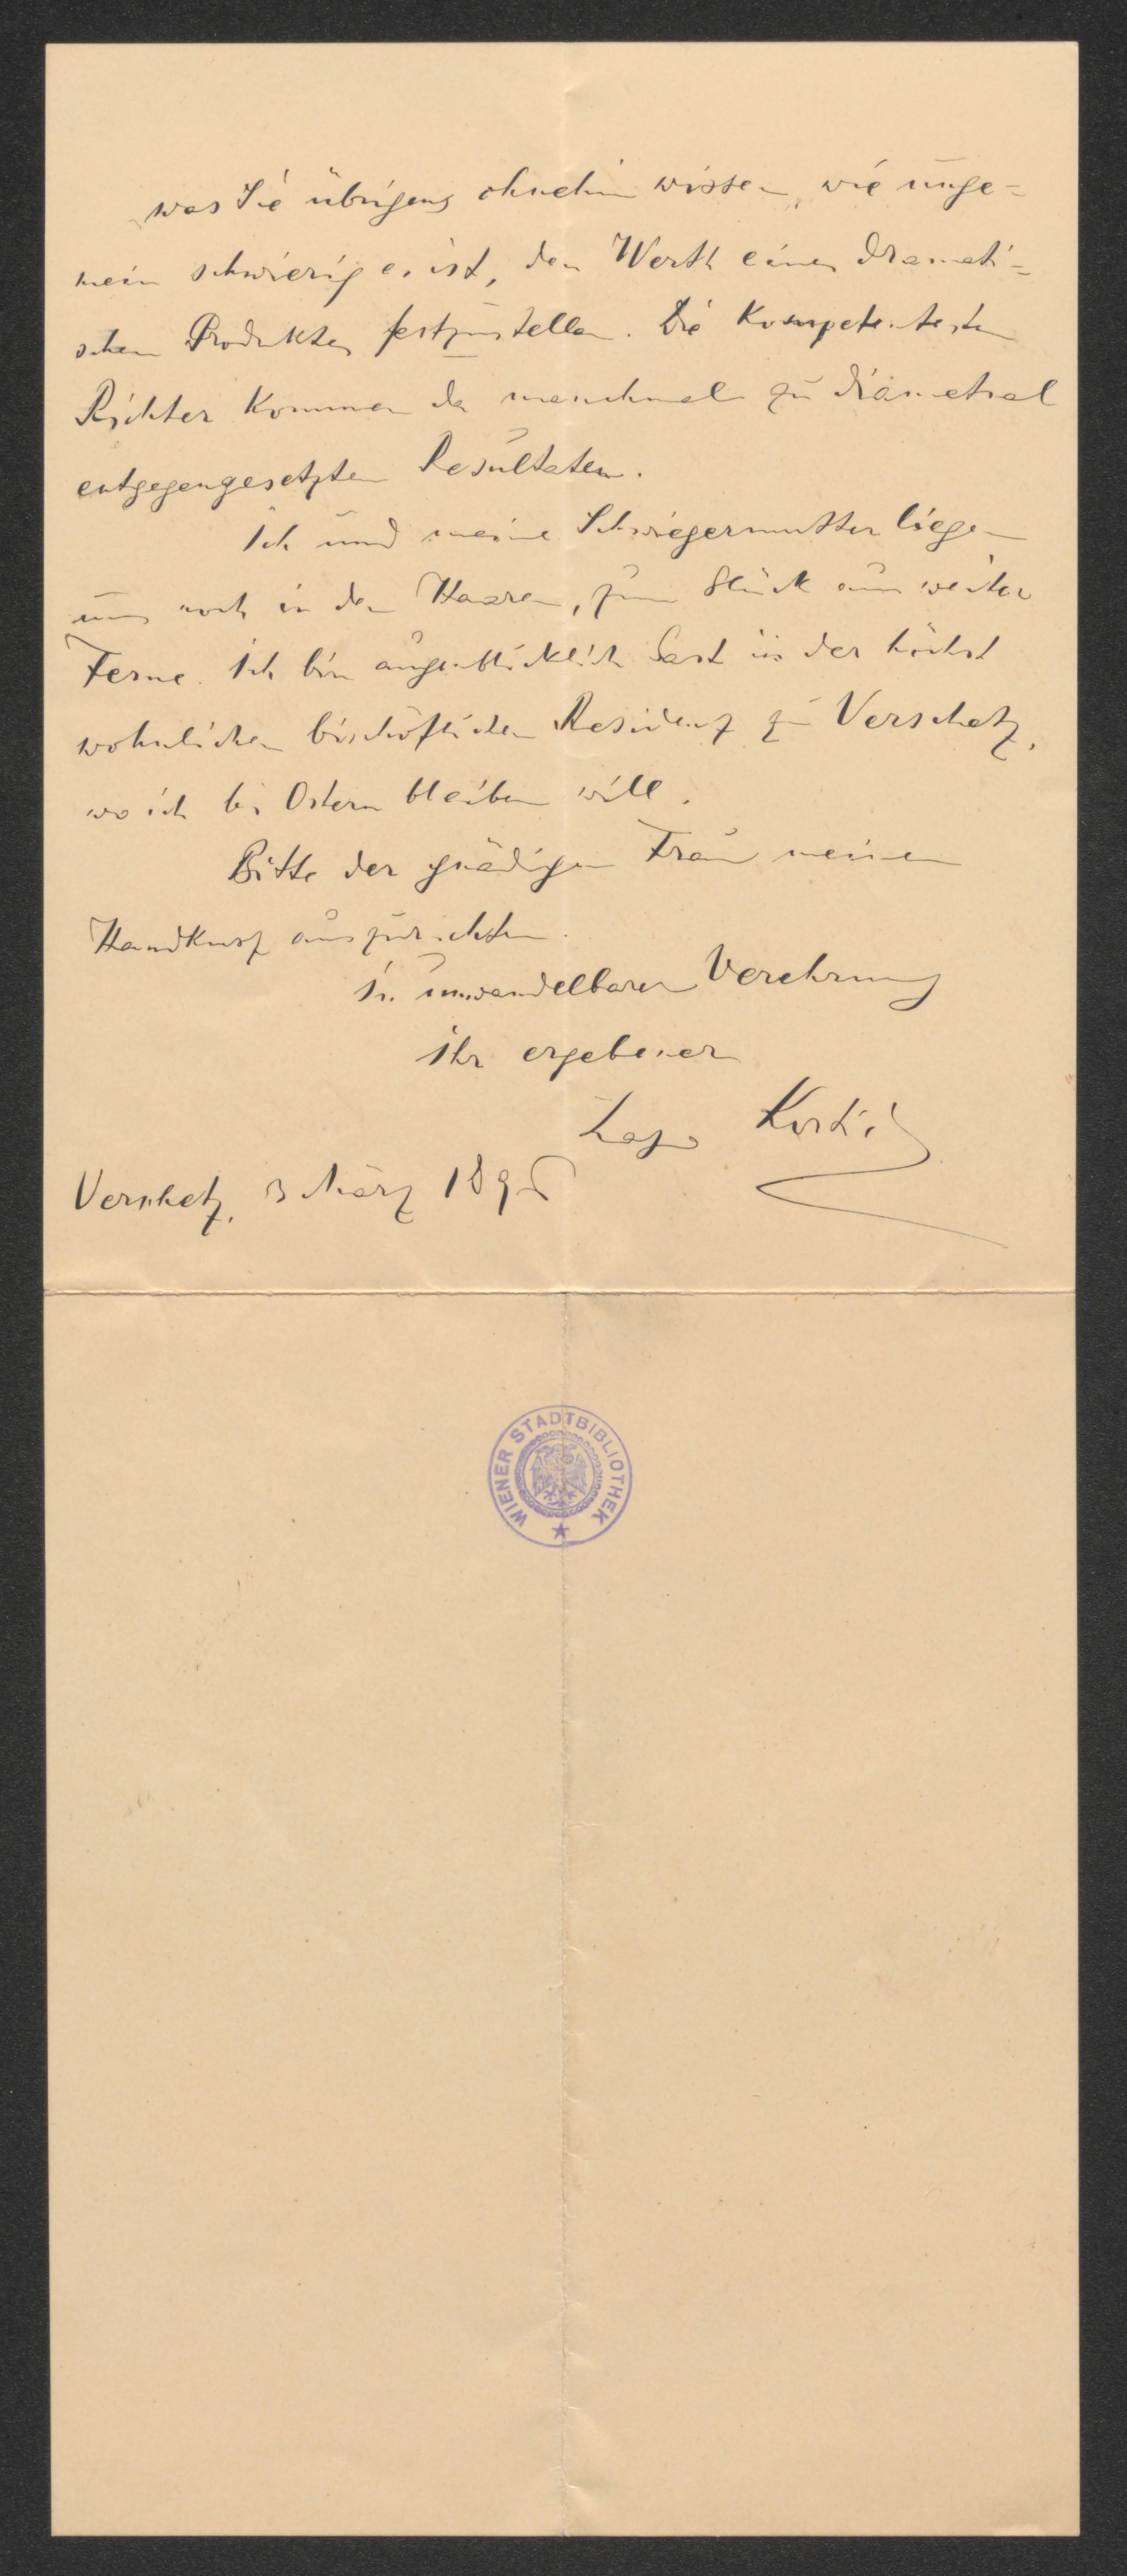 was Sie übrigens ohnehin wissen, wie unge-
mein schwierig es ist, den Werth eines dramati-
schen Produktes festzustellen. Die kompetentesten
Richter kommen da manchmal zu diametral
entgegengesetzten Resultaten.
Ich und meine Schwiegermutter liegen
uns noch in den Haaren, zum Glück aus weiter
Ferne. Ich bin augenblicklich Gast in der höchst
wohnlichen bischöflichen Residenz zu Verschetz,
wo ich bis Ostern bleiben will.
Bitte der gnädigen Frau meinen
Handkuss auszurichten.
In unwandelbarer Verehrung
Ihr ergebener
Lazo Kostić
Verschetz, 3 März
WIENER STADTBIBLIOTHEK